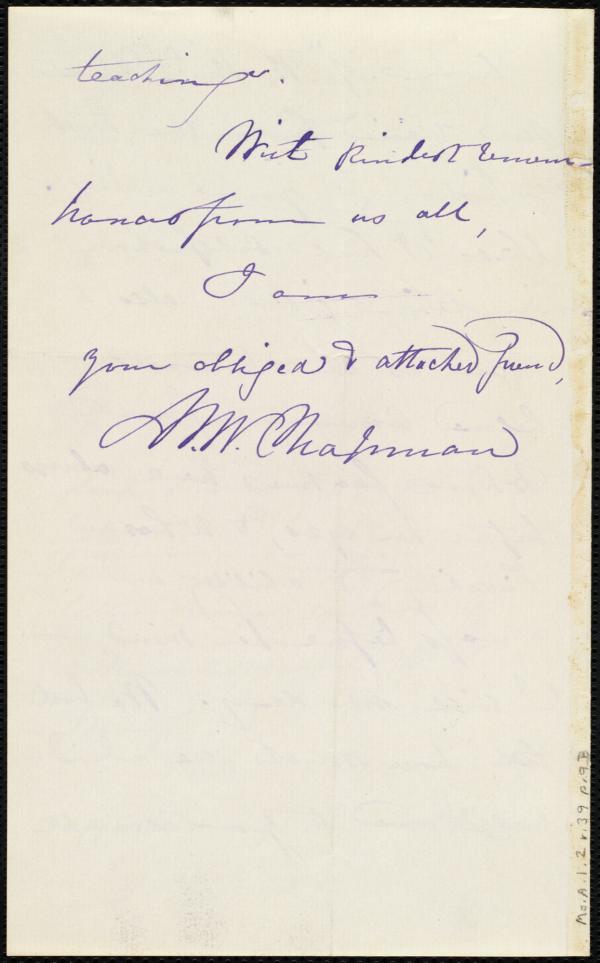 teaching.
With kindest remem-
brances from us all,
I am
your obliged & attached friend,
M. W. Chapman
Ms. A. 1. 2 v. 39 p. 9B